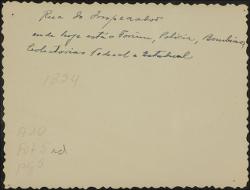 Rua do Imperador
onde hoje está o Forum, Policia, Bombeiros,
Coletorias Federal e Estadual
1824
A20
Fot 5
Pg 5